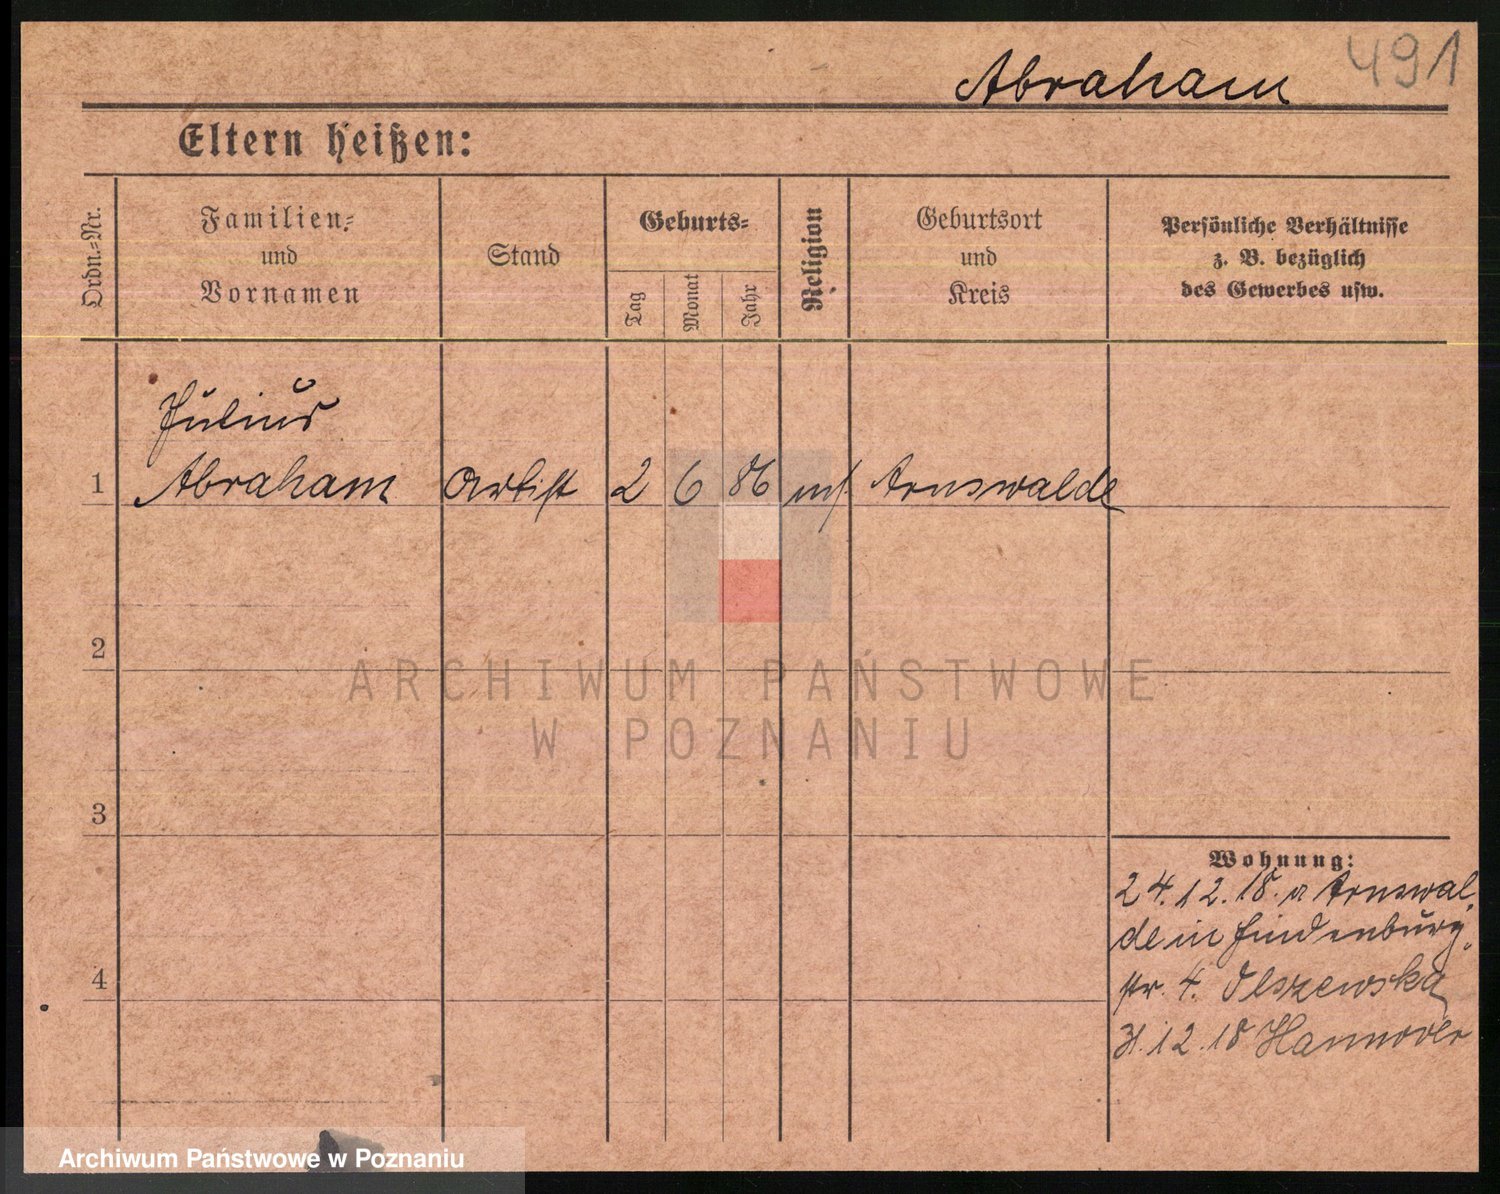 491
Abraham
Eltern heißen:
Ordn.-Nr.
Familien-
und
Vornamen
Stand
Geburts-
Tag
Monat
Jahr
Religion
Geburtsort
und
Kreis
Persönliche Verhältnisse
z. B. bezüglich
des Gewerbes usw.
Julius
1 Abraham Artist 2 6 86 Arnswalde
2
3
4
Wohnung:
24.12.18. a Arnswal-
de in Hindenburg-
str. 4. Olszewska
31.12.18 Hannover
ARCHIWUM PAŃSTWOWE
W POZNANIU
Archiwum Państwowe w Poznaniu